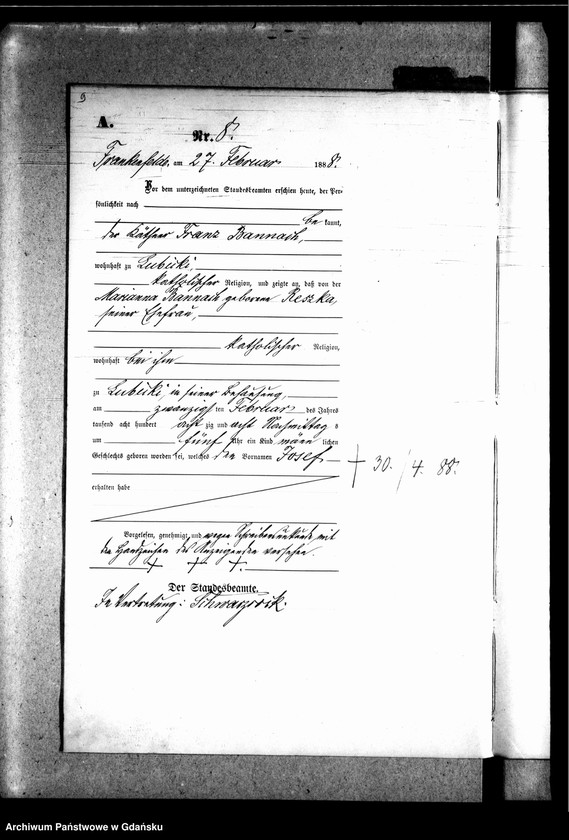 9
A.
Nr. 8.
Frankenfelde am 27. Februar 1888.
Vor dem unterzeichneten Standesbeamten erschien heute, der Per-
sönlichkeit nach
be kannt,
der Käthner Franz Bannach,
wohnhaft zu Lubicki,
katholischer Religion, und zeigte an, daß von der
Marianna Bannach geborene Reszka,
seiner Ehefrau,
katholischer Religion,
wohnhaft bei ihm
zu Lubicki, in seiner Behausung,
am zwanzigsten Februar des Jahres
tausend acht hundert acht zig und acht Nachmittag s
um fünf Uhr ein Kind männ lichen
Geschlechts geboren worden sei, welches den Vornamen Josef
+ 30./4. 88.
erhalten habe
Vorgelesen, genehmigt und wegen Schreibensunkunde mit
den Handzeichen des Anzeigenden versehen.
+ + +.
Der Standesbeamte.
In Vertretung:
Archiwum Państwowe w Gdańsku